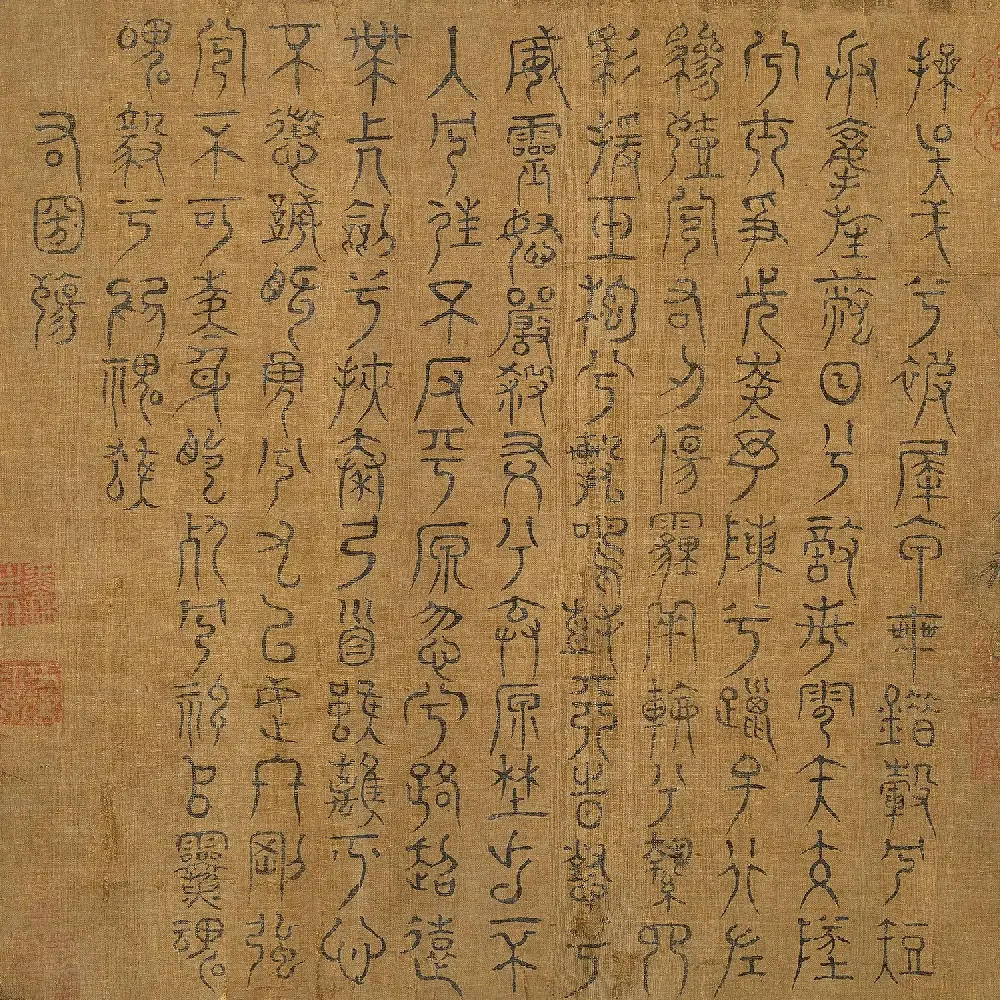 操吳戈兮被犀甲車錯轂兮短
兵接旌蔽日兮敵若雲矢交墜
兮士爭先凌余陣兮躐余行左
驂殪兮右刃傷霾兩輪兮縶四
馬援玉枹兮擊鳴鼓天時懟兮
威靈怒嚴殺盡兮棄原野出不
入兮往不反平原忽兮路超遠
帶長劍兮挾秦弓首雖離兮心
不懲誠既勇兮又以武終剛強
兮不可凌身既死兮神以靈魂
魄毅兮為鬼雄
右國殤